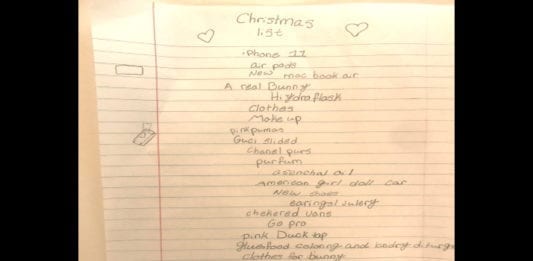 Christmas
list
iPhone 11
air pods
New mac book air
A real Bunny
Hydroflask
Clothes
Make up
pink pumas
Guci slided
Chanel purs
purfum
asenchal oil
American girl doll car
New shoes
earingsl julery
chekered vans
Go pro
pink Duck tap
food coloring and
clothes for bunny